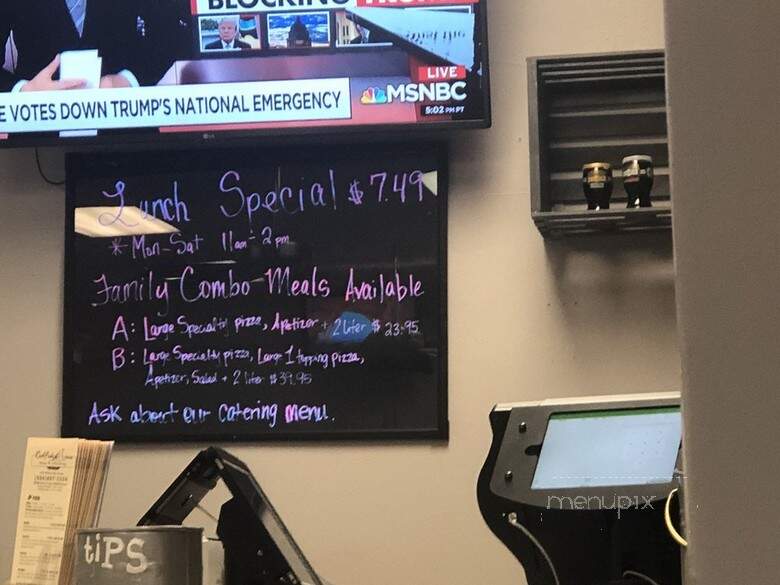 BLOCKING
LIVE
MSNBC
5:02 PM PT
E VOTES DOWN TRUMP'S NATIONAL EMERGENCY
LG
Lunch Special $7.49
* Mon-Sat 11am-2pm
Family Combo Meals Available
A: Large Specialty pizza, Apetizer + 2 liter $23.95
B: Large Specialty pizza, Large 1 topping pizza,
Apetizer, Salad + 2 liter $39.95
Ask about our catering menu.
tiPS
menupix